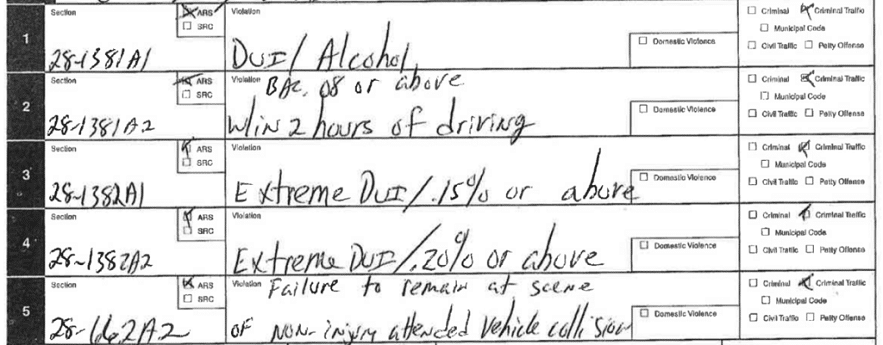 1
Section
☒ ARS
☐ SRC
28-1381A1
Violation
DUI/ Alcohol
☐ Domestic Violence
☐ Criminal ☒ Criminal Traffic
☐ Municipal Code
☐ Civil Traffic ☐ Petty Offense
2
Section
☒ ARS
☐ SRC
28-1381A2
Violation BAC .08 or above
W/in 2 hours of driving
☐ Domestic Violence
☐ Criminal ☒ Criminal Traffic
☐ Municipal Code
☐ Civil Traffic ☐ Petty Offense
3
Section
☒ ARS
☐ SRC
28-1382A1
Violation
Extreme DUI/.15% or above
☐ Domestic Violence
☐ Criminal ☒ Criminal Traffic
☐ Municipal Code
☐ Civil Traffic ☐ Petty Offense
4
Section
☒ ARS
☐ SRC
28-1382A2
Violation
Extreme DUI/.20% or above
☐ Domestic Violence
☐ Criminal ☒ Criminal Traffic
☐ Municipal Code
☐ Civil Traffic ☐ Petty Offense
5
Section
☒ ARS
☐ SRC
28-662A2
Violation Failure to remain at scene
of non-injury attended vehicle collision
☐ Domestic Violence
☐ Criminal ☒ Criminal Traffic
☐ Municipal Code
☐ Civil Traffic ☐ Petty Offense